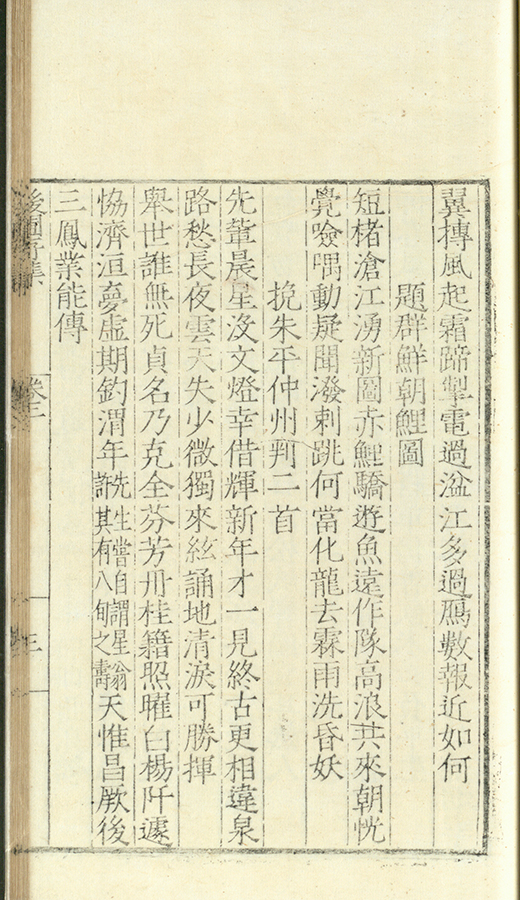 翼摶風起霜蹄掣電過湓江多過鴈數報近如何
題群鮮朝鯉圖
短楮滄江湧新圖赤鯉驕遊魚遠作隊高浪共來朝恍
覺噞喁動疑聞潑剌跳何當化龍去霖雨洗昏妖
挽朱平仲州判二首
先輩晨星沒文燈幸借輝新年才一見終古更相違泉
路愁長夜雲天失少微獨來絃誦地清淚可勝揮
舉世誰無死貞名乃克全芬芳丹桂籍照曜白楊阡遽
恊濟洹夢虛期釣渭年先生嘗自謂星翁許其有八旬之壽天惟昌厥後
三鳳業能傳
後圃存集
卷三
三